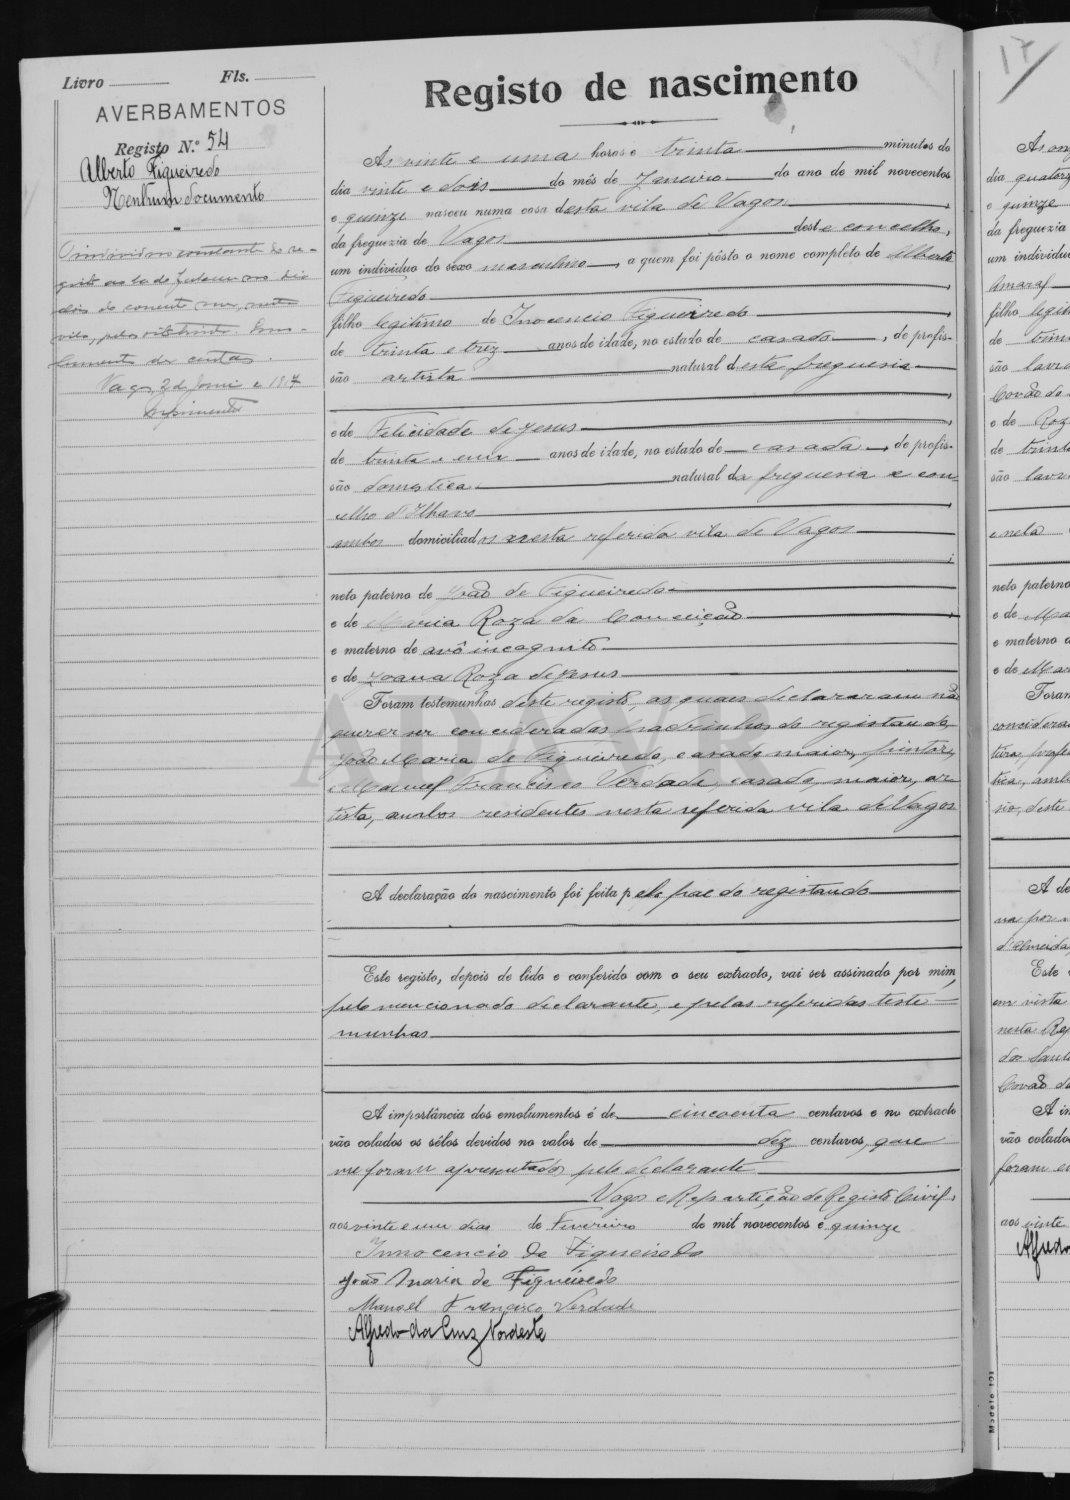 Livro Fls.
AVERBAMENTOS
Registo N.º 54
Alberto Figueiredo
Nenhum documento
O individuo constante do re-
gisto ao lado faleceu no dia
dois do corrente mez, nesta
vila,
Vagos, 3 de Junho de 1917
Registo de nascimento
17
As vinte e uma horas e trinta minutos do
dia vinte e dois do mês de Janeiro do ano de mil novecentos
e quinze nasceu numa casa desta vila de Vagos,
da freguezia de Vagos deste concelho,
um individuo do sexo masculino, a quem foi pôsto o nome completo de Alberto
Figueiredo
filho legitimo de Inocencio Figueiredo
de trinta e trez anos de idade, no estado de casado, de profis-
são artista natural desta freguesia
e de Felicidade de Jesus
de trinta e um anos de idade, no estado de casada, de profis-
são domestica natural da freguesia e con-
celho d'Ilhavo
ambos domiciliados nesta referida vila de Vagos
neto paterno de João de Figueiredo
e de Maria Roza da Conceição
e materno de avô incognito
e de Joana Roza de Jesus
Foram testemunhas deste registo, as quaes declararam não
querer ser consideradas padrinhos do registando,
João Maria de Figueiredo, casado, maior, pintor,
e Manuel Francisco Verdade, casado, maior, ar-
tista, ambos residentes nesta referida vila de Vagos
A declaração do nascimento foi feita pelo pae do registando
Este registo, depois de lido e conferido com o seu extracto, vai ser assinado por mim,
pelo mencionado declarante, e pelas referidas teste=
munhas
A importância dos emolumentos é de cincoenta centavos e no extracto
vão colados os sêlos devidos no valor de dez centavos, que
me foram apresentados pelo declarante
Vagos e Repartição do Registo Civil,
aos vinte e um dias de Fevereiro de mil novecentos e quinze
Innocencio de Figueiredo
João Maria de Figueiredo
Manoel Francisco Verdade
Alfredo da Cruz Nordeste
ADAVR
Modelo 121